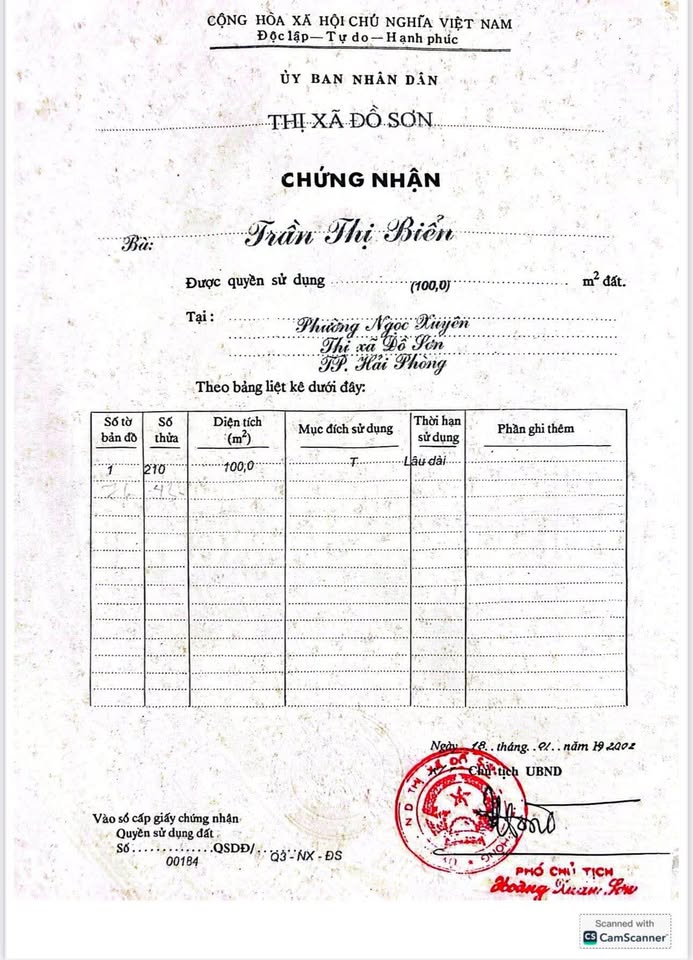 CỘNG HÒA XÃ HỘI CHỦ NGHĨA VIỆT NAM
Độc lập — Tự do — Hạnh phúc
ỦY BAN NHÂN DÂN
THỊ XÃ ĐỒ SƠN
CHỨNG NHẬN
Bà: Trần Thị Biển
Được quyền sử dụng (100,0) m² đất.
Tại : Phường Ngọc Xuyên
Thị xã Đồ Sơn
TP. Hải Phòng
Theo bảng liệt kê dưới đây:
Số tờ bản đồ Số thửa Diện tích (m²) Mục đích sử dụng Thời hạn sử dụng Phần ghi thêm
1 210 100,0 T Lâu dài
Ngày 18 tháng 01 năm 19 2002
Chủ tịch UBND
Vào sổ cấp giấy chứng nhận
Quyền sử dụng đất
Số 00184 QSDĐ/ Q3 - NX - ĐS
PHÓ CHỦ TỊCH
Hoàng Xuân Sơn
Scanned with
CS CamScanner